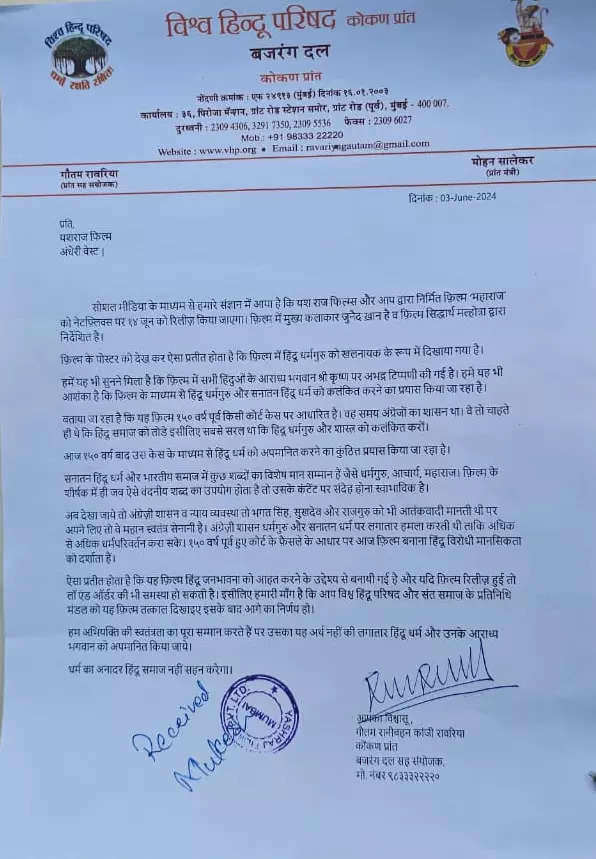 विश्व हिन्दू परिषद
धर्मो रक्षति रक्षितः
विश्व हिन्दू परिषद कोकण प्रांत
बजरंग दल
कोकण प्रांत
नोंदणी क्रमांक : एफ २४९१३ (मुंबई) दिनांक १६.०१.२००३
कार्यालय : ३६, पिरोजा मॅन्शन, ग्रांट रोड स्टेशन समोर, ग्रांट रोड (पूर्व), मुंबई - 400 007.
दुरध्वनी : 2309 4306, 3291 7350, 2309 5536 फेक्स : 2309 6027
Mob.: +91 98333 22220
Website : www.vhp.org • Email : ravariyagautam@gmail.com
गौतम रावरिया
(प्रांत सह संयोजक)
मोहन सालेकर
(प्रांत मंत्री)
दिनांक : 03-June-2024
प्रति,
यशराज फिल्म
अंधेरी वेस्ट |
सोशल मीडिया के माध्यम से हमारे संज्ञान में आया है कि यश राज फिल्म्स और आप द्वारा निर्मित फ़िल्म 'महाराज'
को नेटफ्लिक्स पर १४ जून को रिलीज़ किया जाएगा। फ़िल्म में मुख्य कलाकार जुनैद ख़ान है व फ़िल्म सिद्धार्थ मल्होत्रा द्वारा
निर्देशित है।
फ़िल्म के पोस्टर को देख कर ऐसा प्रतीत होता है कि फ़िल्म में हिंदू धर्मगुरु को खलनायक के रूप में दिखाया गया है।
हमें यह भी सुनने मिला है कि फ़िल्म में सभी हिंदुओं के आराध्य भगवान श्री कृष्ण पर अभद्र टिप्पणी की गई है। हमे यह भी
आशंका है कि फ़िल्म के माध्यम से हिंदू धर्मगुरु और सनातन हिंदू धर्म को कलंकित करने का प्रयास किया जा रहा है।
बताया जा रहा है कि यह फ़िल्म १५० वर्ष पूर्व किसी कोर्ट केस पर आधारित है। वह समय अंग्रेजों का शासन था। वे तो चाहते
ही थे कि हिंदू समाज को तोडे इसीलिए सबसे सरल था कि हिंदू धर्मगुरु और शास्त्र को कलंकित करों।
आज १५० वर्ष बाद उस केस के माध्यम से हिंदू धर्म को अपमानित करने का कुंठित प्रयास किया जा रहा है।
सनातन हिंदू धर्म और भारतीय समाज में कुछ शब्दों का विशेष मान सम्मान हैं जेसे धर्मगुरु, आचार्य, महाराज। फ़िल्म के
शीर्षक में ही जब ऐसे वंदनीय शब्द का उपयोग होता है तो उसके कंटेंट पर संदेह होना स्वाभाविक है।
अब देखा जाये तो अंग्रेज़ी शासन व न्याय व्यवस्था तो भगत सिंह, सुखदेव और राजगुरु को भी आतंकवादी मानती थी पर
अपने लिए तो वे महान स्वतंत्र सेनानी है। अंग्रेज़ी शासन धर्मगुरु और सनातन धर्म पर लगातार हमला करती थी ताकि अधिक
से अधिक धर्मपरिवर्तन करा सके। १५० वर्ष पूर्व हुए कोर्ट के फ़ैसले के आधार पर आज फ़िल्म बनाना हिंदू विरोधी मानसिकता
को दर्शाता हैं।
ऐसा प्रतीत होता है कि यह फ़िल्म हिंदू जनभावना को आहत करने के उद्देश्य से बनायी गई है और यदि फ़िल्म रिलीज़ हुई तो
लॉ एंड ऑर्डर की भी समस्या हो सकती है। इसीलिए हमारी माँग है कि आप विश्व हिंदू परिषद और संत समाज के प्रतिनिधि
मंडल को यह फ़िल्म तत्काल दिखाइए इसके बाद आगे का निर्णय हो।
हम अभियक्ति की स्वतंत्रता का पूरा सम्मान करते हैं पर उसका यह अर्थ नहीं की लगातार हिंदू धर्म और उनके आराध्य
भगवान को अपमानित किया जाये।
धर्म का अनादर हिंदू समाज नहीं सहन करेगा।
Received
YASHRAJ FILMS PVT. LTD.
MUMBAI
आपका विश्वासू ,
गौतम रानीबहन कांजी रावरिया
कोंकण प्रांत
बजरंग दल सह संयोजक,
मो. नंबर ९८३३३२२२२०